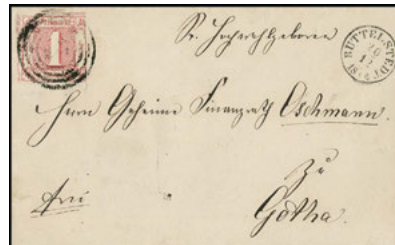 1
Sr. Hochwohlgeboren
BUTTELSTEDT
20
12
Herrn Geheime Finanzrath Oschmann.
zu
frei
Gotha.